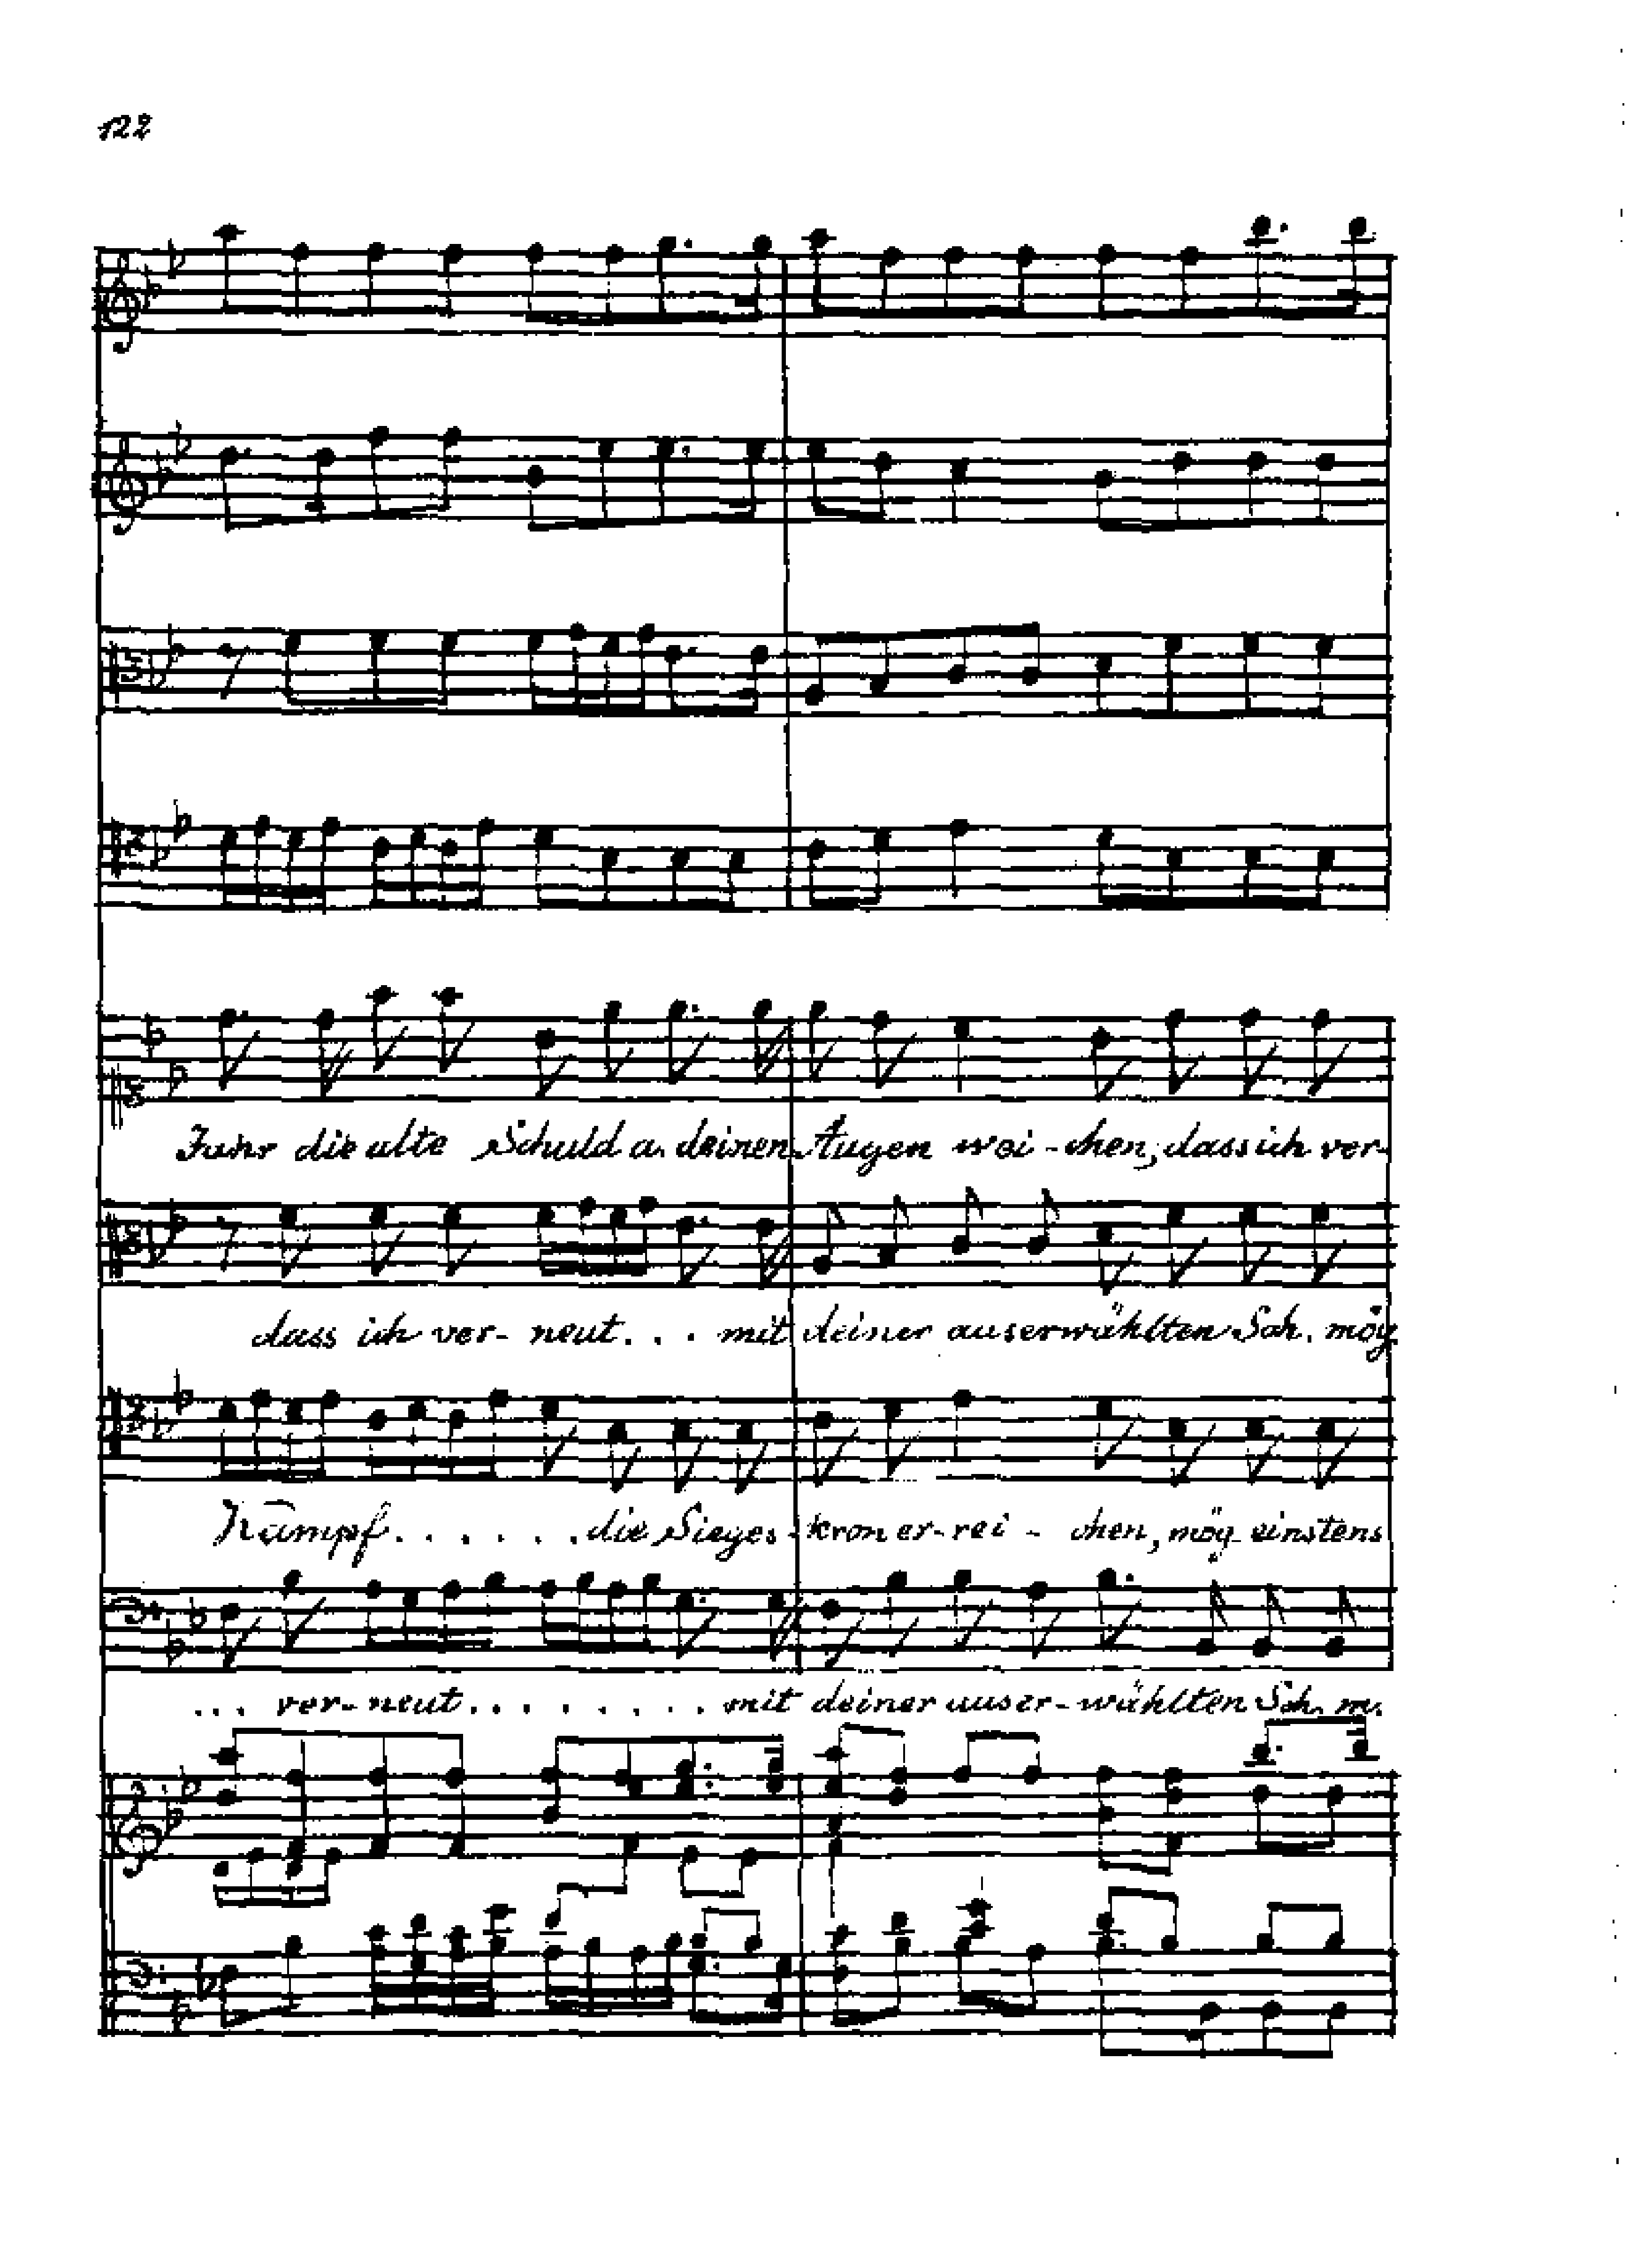 122
Jahr die alte Schuld a. deinen Augen wei - chen, dass ich ver-
dass ich ver- neut . . . mit deiner auserwählten Sch. mög
Kampf . . . . . . die Sieges - kron er-rei - chen, mög einstens
. . . ver- neut . . . . . . . . mit deiner auser-wählten Sch. m.